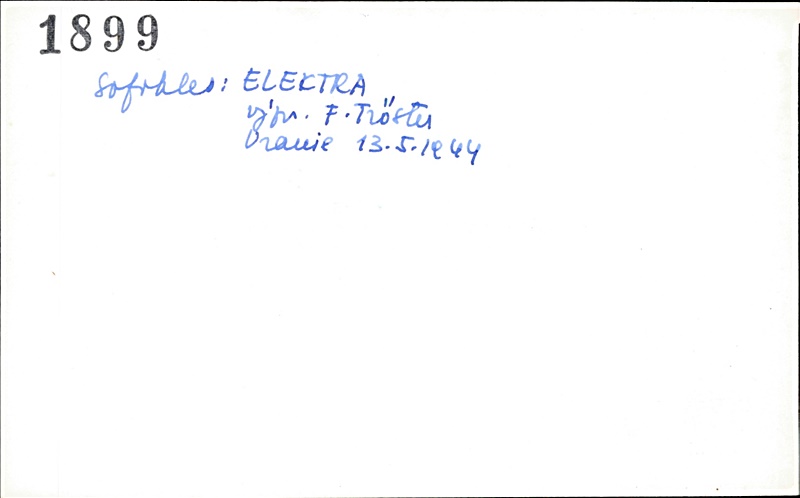 1899
Sofokles: ELEKTRA
výpr. F. Tröster
Uranie 13.5.1944